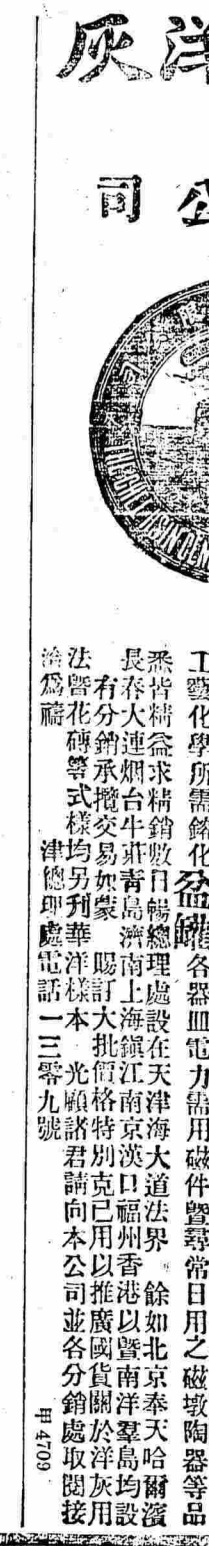 洋灰
公司
工藝化學所需鎔化盆罐各器皿電力需用磁件暨尋常日用之磁墩陶器等品
悉皆精益求精銷數日暢總理處設在天津海大道法界 餘如北京奉天哈爾濱
長春大連烟台牛莊青島濟南上海鎮江南京漢口福州香港以暨南洋羣島均設
有分銷承攬交易如蒙 賜訂大批價格特別克已用以推廣國貨關於洋灰用
法暨花磚等式樣均另刊華洋樣本 光顧諸君請向本公司並各分銷處取閱接
洽為禱 津總理處電話一三零九號
甲 4709